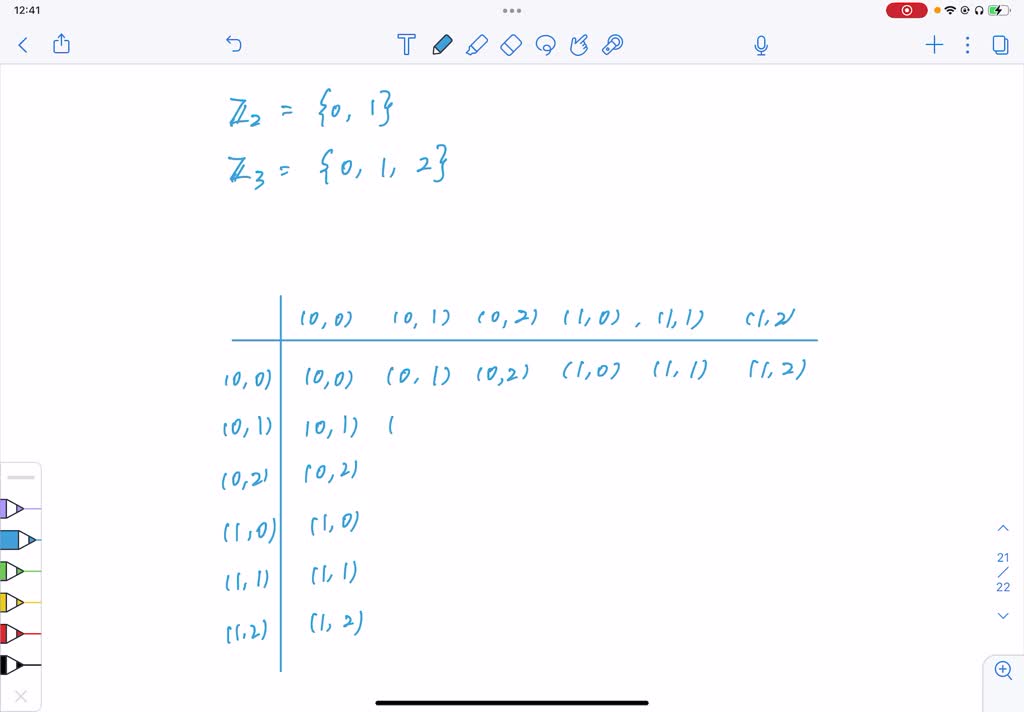 12:41
T
ℤ₂ = {0, 1}
ℤ₃ = {0, 1, 2}
(0,0) (0,1) (0,2) (1,0), (1,1) (1,2)
(0,0) (0,0) (0,1) (0,2) (1,0) (1,1) (1,2)
(0,1) (0,1) (
(0,2) (0,2)
(1,0) (1,0)
(1,1) (1,1)
(1,2) (1,2)
21
/
22